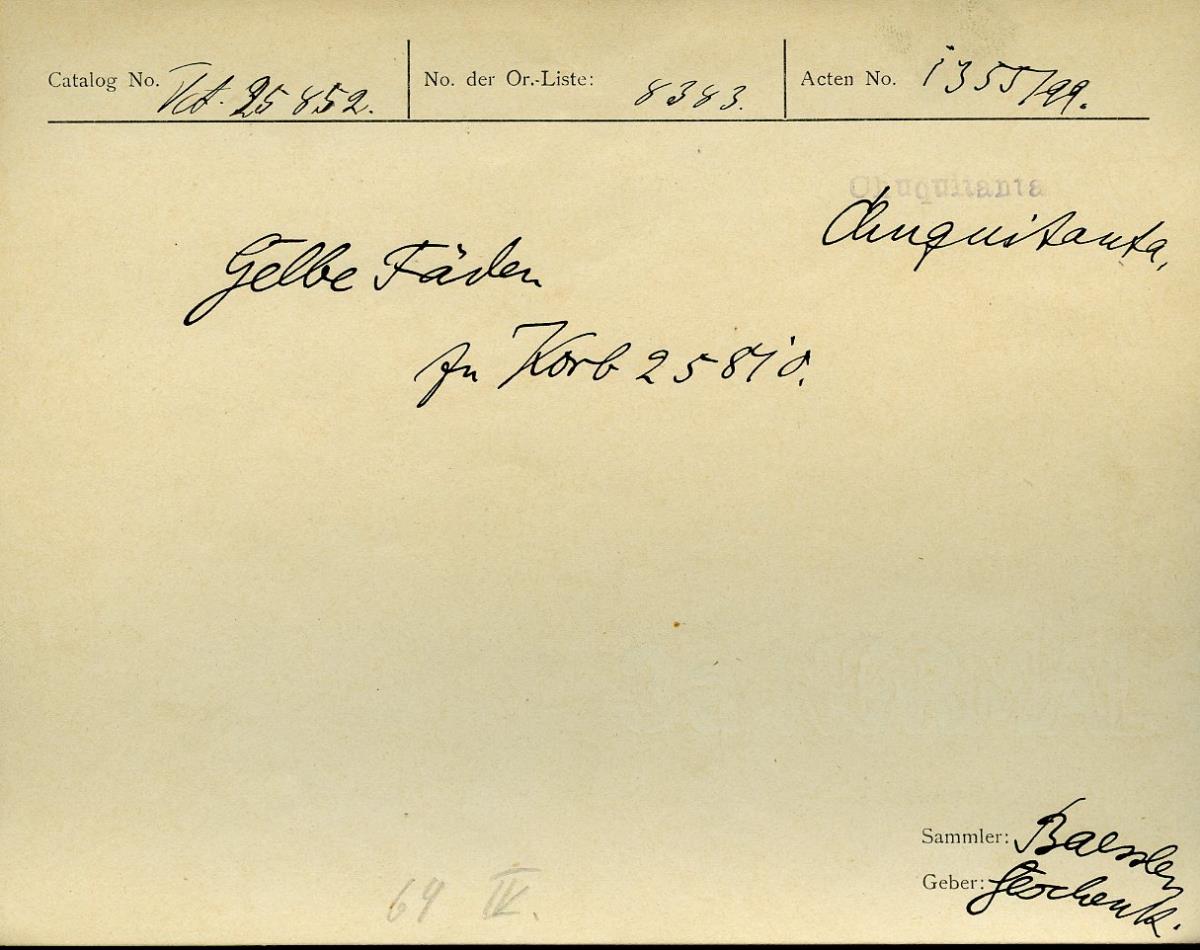 Catalog No. VA. 25852. No. der Or.-Liste: 8383. Acten No. 1355/99.
Chuquitanta
Chuquitanta,
Gelbe Fäden
zu Korb 25810.
Sammler: Baessler
Geber: Geschenk.
64 IV.